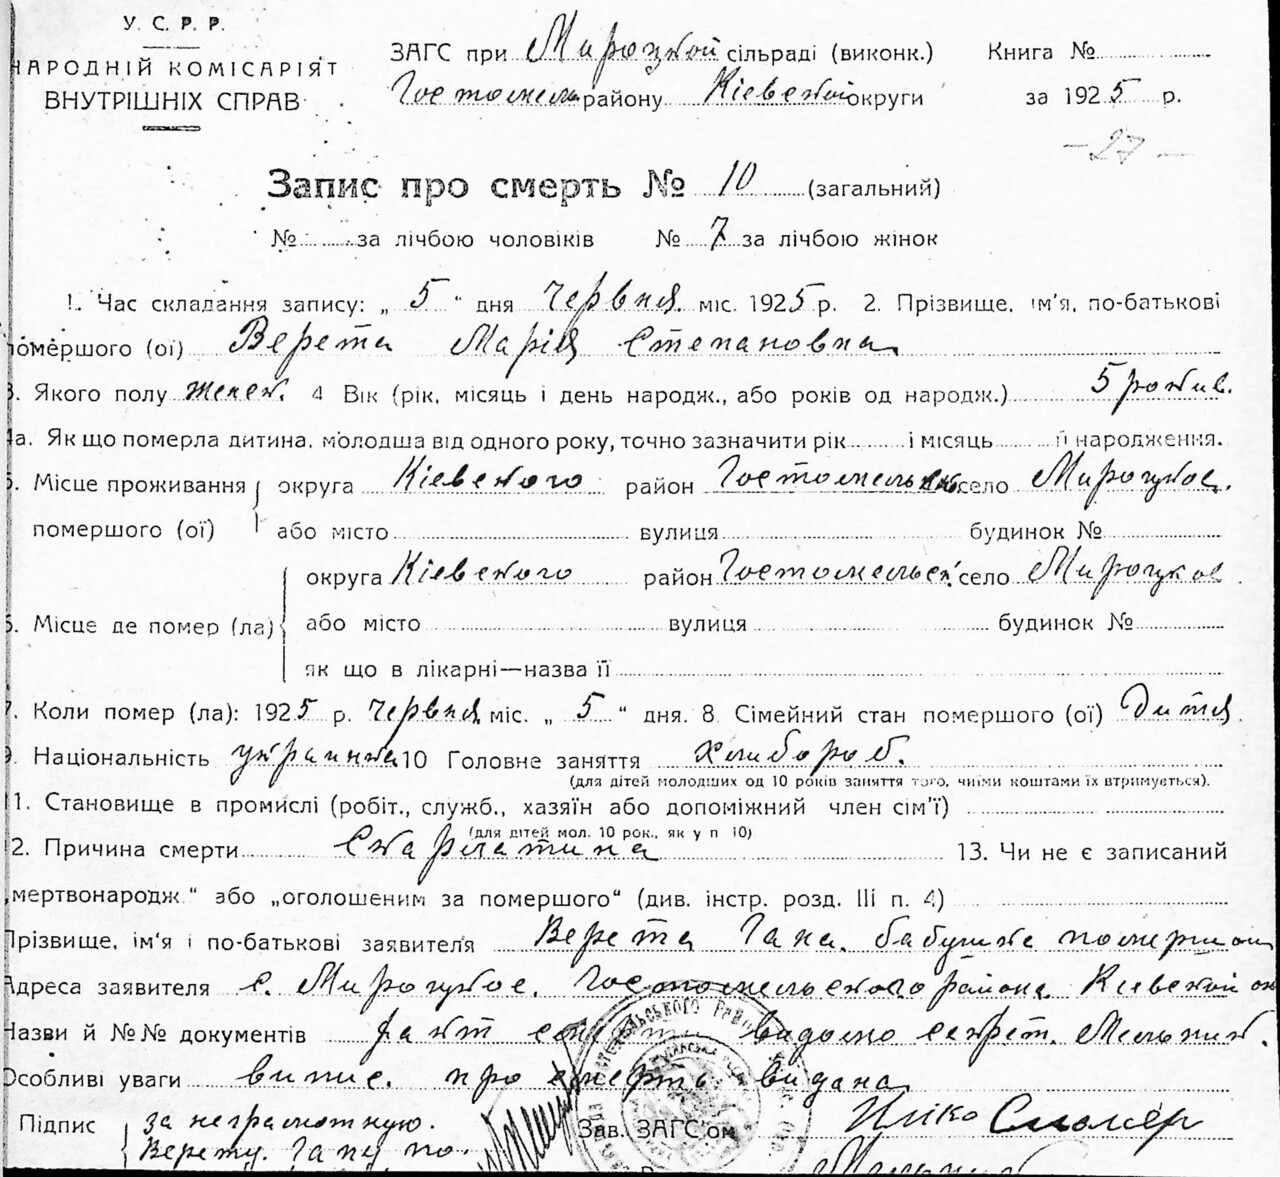 У. С. Р. Р.
НАРОДНІЙ КОМІСАРІЯТ
ВНУТРІШНІХ СПРАВ
ЗАГС при Мироцкой сільраді (виконк.)
Гостомель району Кіевской округи
Книга №
за 1925 р.
- 27 -
Запис про смерть № 10 (загальний)
№ за лічбою чоловіків № 7 за лічбою жінок
1. Час складання запису: „ 5 " дня Червня міс. 1925 р. 2. Прізвище, ім'я, по-батькові
помершого (ої) Верета Марія Степановна
3. Якого полу женск. 4 Вік (рік, місяць і день народж., або років од народж.) 5 років.
4а. Як що померла дитина, молодша від одного року, точно зазначити рік і місяць її народження.
5. Місце проживання округа Кіевского район Гостомельск село Мироцкое.
помершого (ої) або місто вулиця будинок №
округа Кіевского район Гостомельск. село Мироцкое
6. Місце де помер (ла) або місто вулиця будинок №
як що в лікарні—назва її
7. Коли помер (ла): 1925 р. червня міс. „ 5 " дня. 8 Сімейний стан помершого (ої) Дитя
9. Національність украинка 10 Головне заняття хлибороб.
(для дітей молодших од 10 років заняття того, чиїми коштами їх втримується).
11. Становище в промислі (робіт., служб., хазяїн або допоміжний член сім'ї)
(для дітей мол. 10 рок., як у п 10)
12. Причина смерти Скарлатина 13. Чи не є записаний
„мертвонародж." або „оголошеним за помершого" (див. інстр. розд. III п. 4)
Прізвище, ім'я і по-батькові заявителя Верета Гана. бабушка
Адреса заявителя с. Мироцкое. Гостомельского района Киевской
Назви й №№ документів факт смерти видомо секрет. Мельник.
Особливі уваги випис. про смерть видана
Підпис за неграмотную.
Верету. Гану по
Зав. ЗАГС'ом